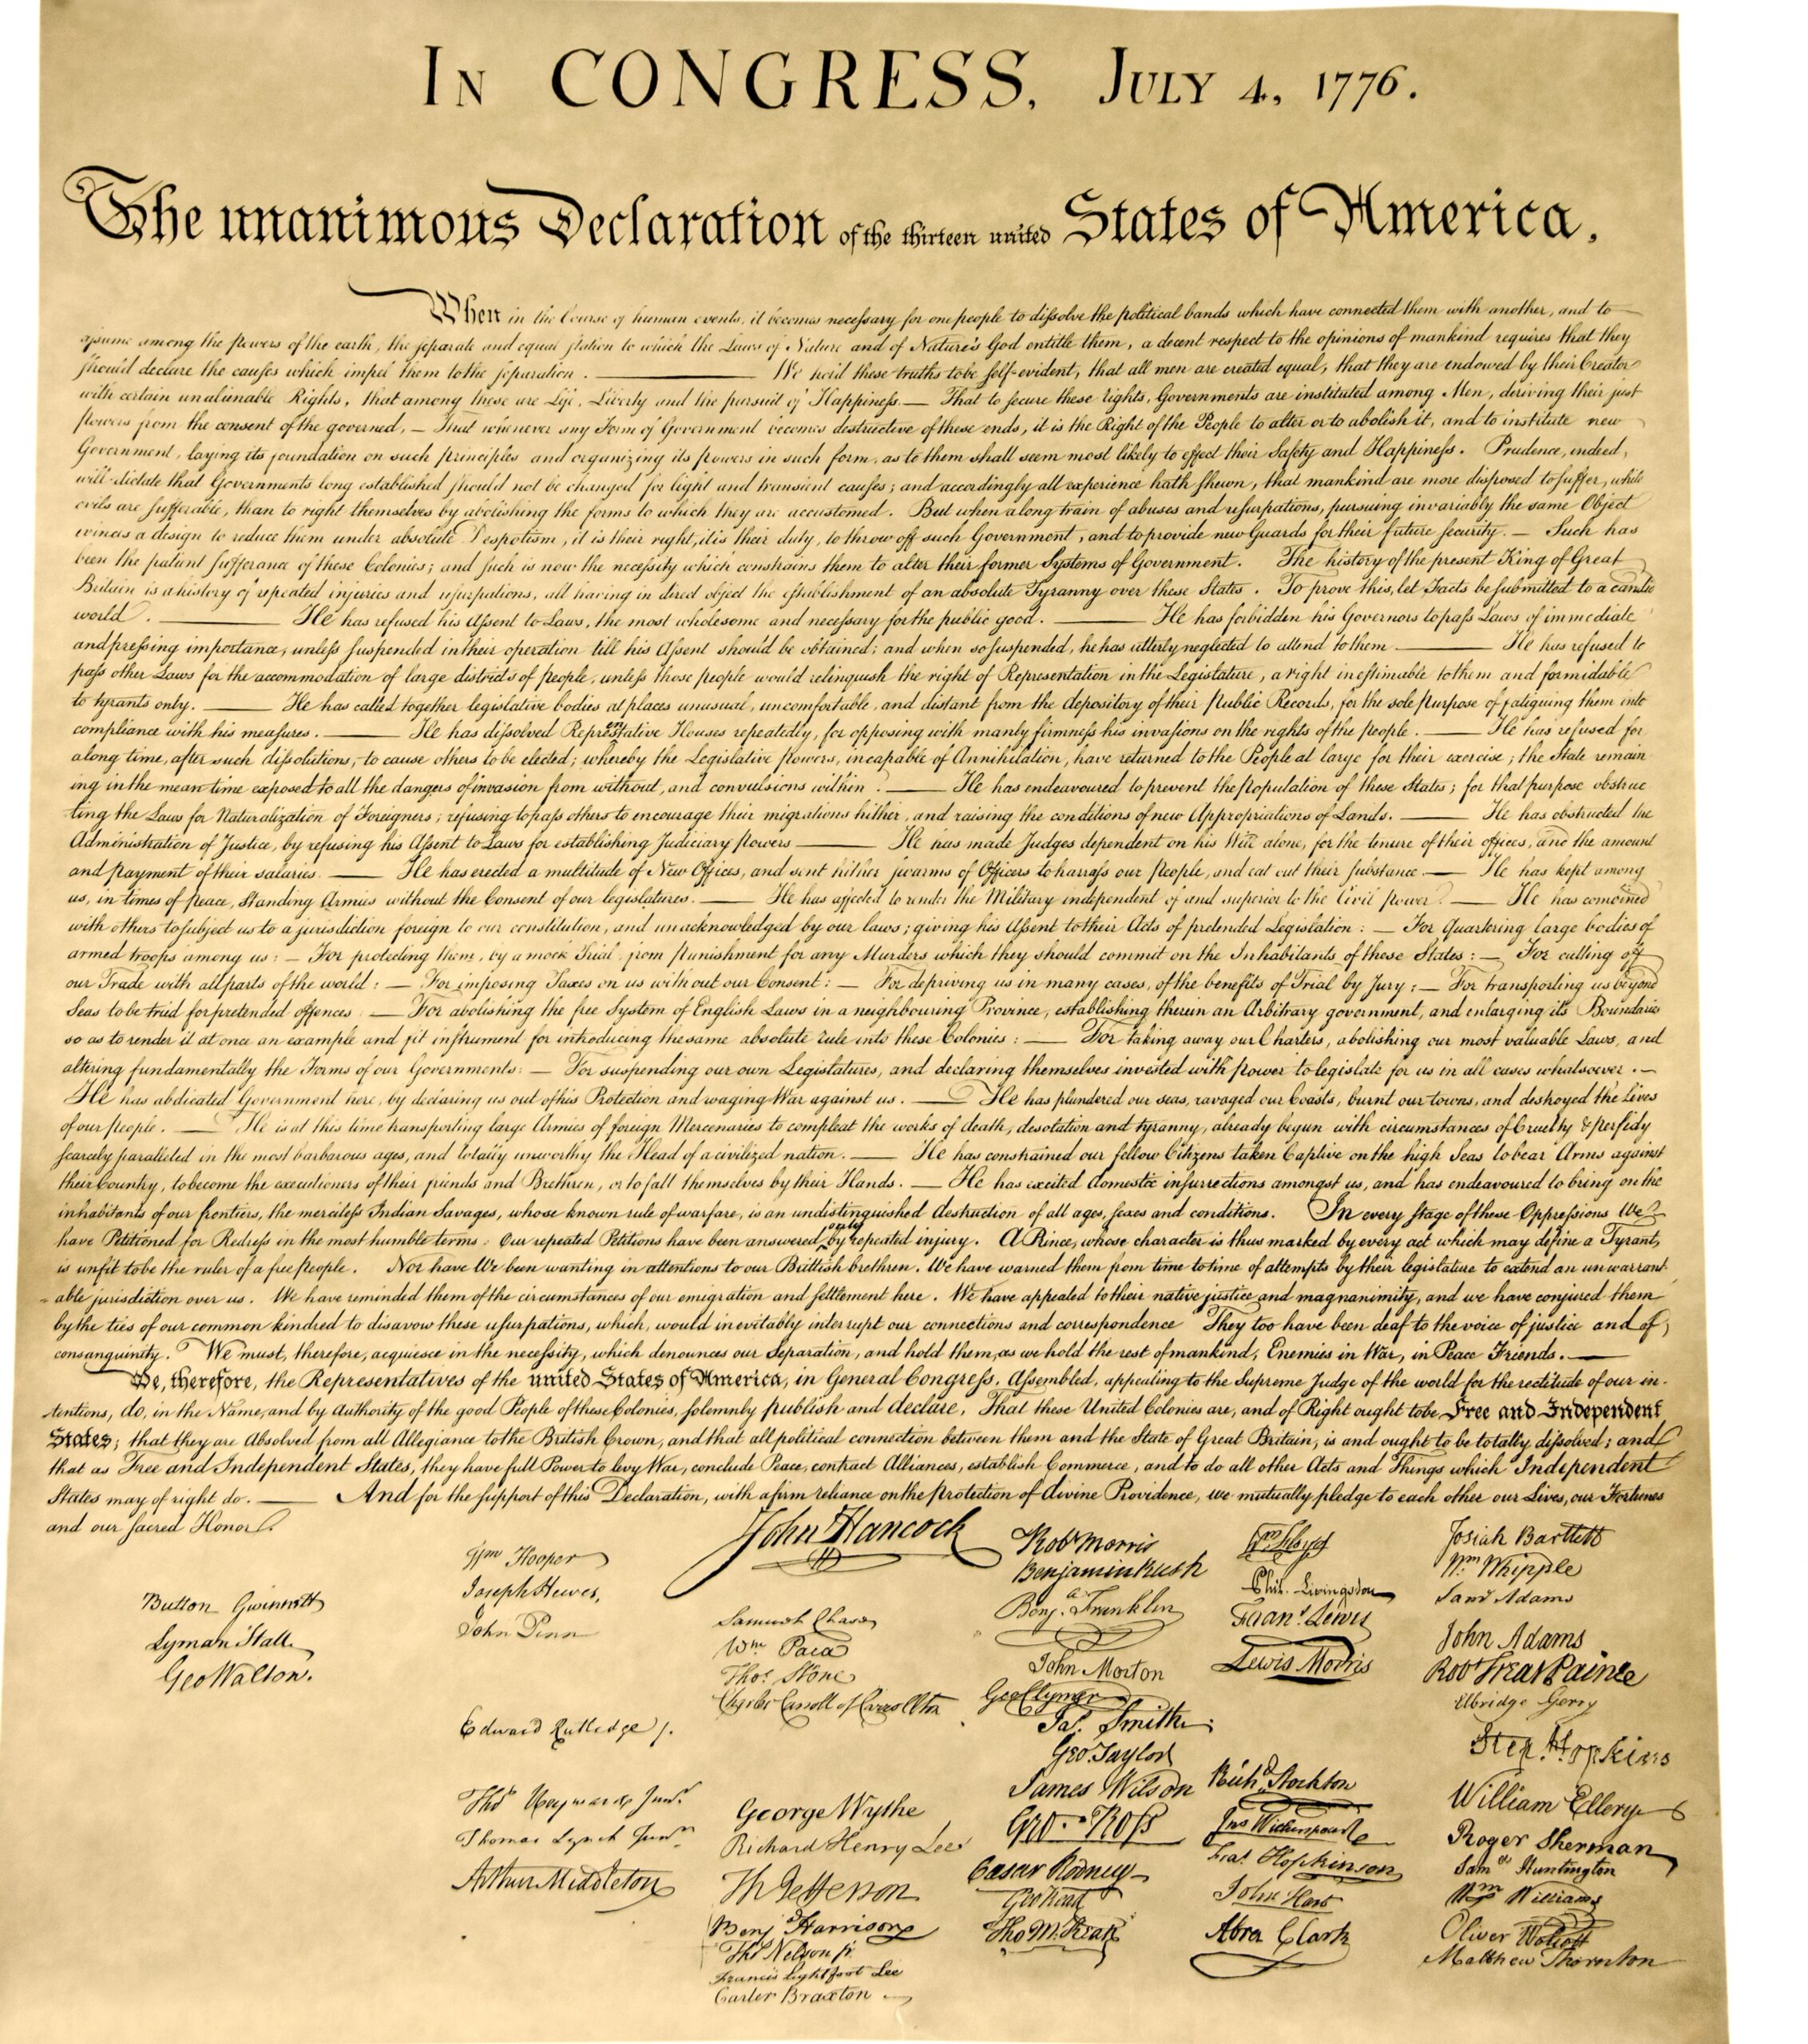 In CONGRESS, July 4, 1776.
The unanimous Declaration of the thirteen united States of America,
When in the Course of human events, it becomes necessary for one people to dissolve the political bands which have connected them with another, and to
assume among the powers of the earth, the separate and equal station to which the Laws of Nature and of Nature's God entitle them, a decent respect to the opinions of mankind requires that they
should declare the causes which impel them to the separation. — We hold these truths to be self-evident, that all men are created equal, that they are endowed by their Creator
with certain unalienable Rights, that among these are Life, Liberty and the pursuit of Happiness. — That to secure these rights, Governments are instituted among Men, deriving their just
powers from the consent of the governed, — That whenever any Form of Government becomes destructive of these ends, it is the Right of the People to alter or to abolish it, and to institute new
Government, laying its foundation on such principles and organizing its powers in such form, as to them shall seem most likely to effect their Safety and Happiness. Prudence, indeed,
will dictate that Governments long established should not be changed for light and transient causes; and accordingly all experience hath shewn, that mankind are more disposed to suffer, while
evils are sufferable, than to right themselves by abolishing the forms to which they are accustomed. But when a long train of abuses and usurpations, pursuing invariably the same Object
evinces a design to reduce them under absolute Despotism, it is their right, it is their duty, to throw off such Government, and to provide new Guards for their future security. — Such has
been the patient sufferance of these Colonies; and such is now the necessity which constrains them to alter their former Systems of Government. The history of the present King of Great
Britain is a history of repeated injuries and usurpations, all having in direct object the establishment of an absolute Tyranny over these States. To prove this, let Facts be submitted to a candid
world. — He has refused his Assent to Laws, the most wholesome and necessary for the public good. — He has forbidden his Governors to pass Laws of immediate
and pressing importance, unless suspended in their operation till his Assent should be obtained; and when so suspended, he has utterly neglected to attend to them — He has refused to
pass other Laws for the accommodation of large districts of people, unless those people would relinquish the right of Representation in the Legislature, a right inestimable to them and formidable
to tyrants only. — He has called together legislative bodies at places unusual, uncomfortable, and distant from the depository of their Public Records, for the sole purpose of fatiguing them into
compliance with his measures. — He has dissolved Representative Houses repeatedly, for opposing with manly firmness his invasions on the rights of the people. — He has refused for
a long time, after such dissolutions, to cause others to be elected; whereby the Legislative powers, incapable of Annihilation, have returned to the People at large for their exercise; the State remain
ing in the mean time exposed to all the dangers of invasion from without, and convulsions within. — He has endeavoured to prevent the population of these States; for that purpose obstruc
ting the Laws for Naturalization of Foreigners; refusing to pass others to encourage their migrations hither, and raising the conditions of new Appropriations of Lands. — He has obstructed the
Administration of Justice, by refusing his Assent to Laws for establishing Judiciary powers — He has made Judges dependent on his Will alone, for the tenure of their offices, and the amount
and payment of their salaries. — He has erected a multitude of New Offices, and sent hither swarms of Officers to harrass our people, and eat out their substance. — He has kept among
us, in times of peace, Standing Armies without the Consent of our legislatures. — He has affected to render the Military independent of and superior to the Civil power. — He has combined
with others to subject us to a jurisdiction foreign to our constitution, and unacknowledged by our laws; giving his Assent to their Acts of pretended Legislation: — For Quartering large bodies of
armed troops among us: — For protecting them, by a mock Trial from punishment for any Murders which they should commit on the Inhabitants of these States: — For cutting off
our Trade with all parts of the world: — For imposing Taxes on us without our Consent: — For depriving us in many cases, of the benefits of Trial by Jury: — For transporting us beyond
Seas to be tried for pretended offences — For abolishing the free System of English Laws in a neighbouring Province, establishing therein an Arbitrary government, and enlarging its Boundaries
so as to render it at once an example and fit instrument for introducing the same absolute rule into these Colonies: — For taking away our Charters, abolishing our most valuable Laws, and
altering fundamentally the Forms of our Governments: — For suspending our own Legislatures, and declaring themselves invested with power to legislate for us in all cases whatsoever. —
He has abdicated Government here, by declaring us out of his Protection and waging War against us. — He has plundered our seas, ravaged our Coasts, burnt our towns, and destroyed the Lives
of our people. — He is at this time transporting large Armies of foreign Mercenaries to compleat the works of death, desolation and tyranny, already begun with circumstances of Cruelty & perfidy
scarcely paralleled in the most barbarous ages, and totally unworthy the Head of a civilized nation. — He has constrained our fellow Citizens taken Captive on the high Seas to bear Arms against
their Country, to become the executioners of their friends and Brethren, or to fall themselves by their Hands. — He has excited domestic insurrections amongst us, and has endeavoured to bring on the
inhabitants of our frontiers, the merciless Indian Savages, whose known rule of warfare, is an undistinguished destruction of all ages, sexes and conditions. In every stage of these Oppressions We
have Petitioned for Redress in the most humble terms: Our repeated Petitions have been answered only by repeated injury. A Prince, whose character is thus marked by every act which may define a Tyrant,
is unfit to be the ruler of a free people. Nor have We been wanting in attentions to our Brittish brethren. We have warned them from time to time of attempts by their legislature to extend an unwarrant
able jurisdiction over us. We have reminded them of the circumstances of our emigration and settlement here. We have appealed to their native justice and magnanimity, and we have conjured them
by the ties of our common kindred to disavow these usurpations, which, would inevitably interrupt our connections and correspondence They too have been deaf to the voice of justice and of
consanguinity. We must, therefore, acquiesce in the necessity, which denounces our Separation, and hold them, as we hold the rest of mankind, Enemies in War, in Peace Friends. —
We, therefore, the Representatives of the united States of America, in General Congress, Assembled, appealing to the Supreme Judge of the world for the rectitude of our in-
tentions, do, in the Name, and by Authority of the good People of these Colonies, solemnly publish and declare, That these United Colonies are, and of Right ought to be Free and Independent
States; that they are Absolved from all Allegiance to the British Crown, and that all political connection between them and the State of Great Britain, is and ought to be totally dissolved; and
that as Free and Independent States, they have full Power to levy War, conclude Peace, contract Alliances, establish Commerce, and to do all other Acts and Things which Independent
States may of right do. — And for the support of this Declaration, with a firm reliance on the protection of divine Providence, we mutually pledge to each other our Lives, our Fortunes
and our sacred Honor.
Button Gwinnett
Lyman Hall
Geo Walton.
Wm Hooper
Joseph Hewes,
John Penn
Edward Rutledge /.
Thos Heyward Junr.
Thomas Lynch Junr.
Arthur Middleton
John Hancock
Samuel Chase
Wm. Paca
Thos. Stone
Charles Carroll of Carrollton
George Wythe
Richard Henry Lee
Th Jefferson
Benj Harrison
Thos Nelson jr.
Francis Lightfoot Lee
Carter Braxton
Robt Morris
Benjamin Rush
Benj. Franklin
John Morton
Geo Clymer
Jas. Smith
Geo. Taylor
James Wilson
Geo. Ross
Caesar Rodney
Geo Read
Tho M:Kean
Wm Floyd
Phil. Livingston
Frans. Lewis
Lewis Morris
Richd. Stockton
Jno Witherspoon
Fras. Hopkinson
John Hart
Abra Clark
Josiah Bartlett
Wm Whipple
Saml Adams
John Adams
Robt Treat Paine
Elbridge Gerry
Step. Hopkins
William Ellery
Roger Sherman
Saml Huntington
Wm Williams
Oliver Wolcott
Matthew Thornton